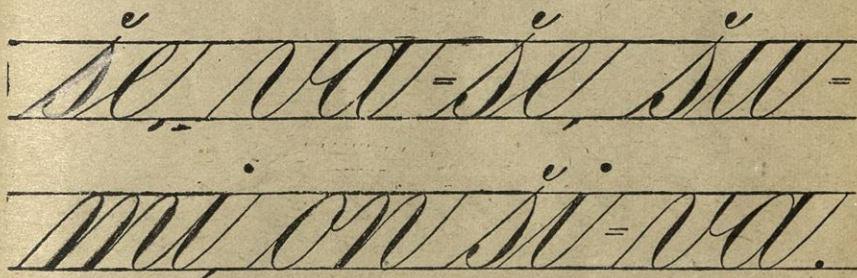 še, va=še, šu=
mi, on ši=va.